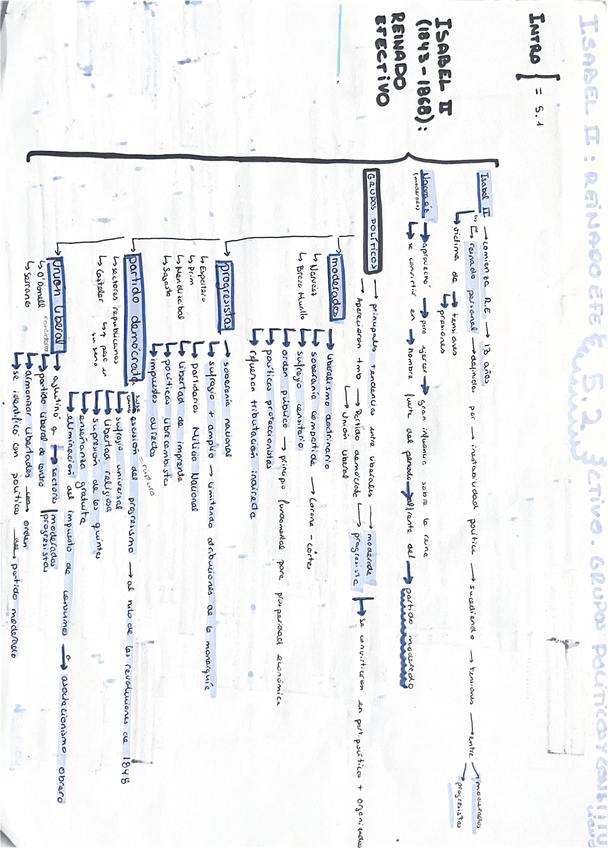 ISABEL II: REINADO EFECTIVO. GRUPOS POLITICOS Y CONSTITU
5.2
INTRO { = 5.1
ISABEL II
(1843-1868):
REINADO
EFECTIVO
Isabel II → comienza R.E → 13 años
↳ reinado personal → definido por → inestabilidad política → sucediendo → tensiones → entre → moderados
→ progresistas
↳ víctima de → tensiones
↳ presiones
Narváez → aprovechó → para ejercer → gran influencia sobre la reina
(moderado)
↳ se convirtió en → hombre fuerte del periodo → al frente del → partido moderado
GRUPOS POLÍTICOS → principales tendencias entre liberales → moderada
→ progresista → se convirtieron en part. políticos + organizados
→ Aparecieron tmb → Partido demócrata
↳ Unión liberal
moderados → liberalismo doctrinario
↳ Narváez
↳ Bravo Murillo
↳ soberanía compartida → Corona - cortes
↳ sufragio censitario
↳ orden público → principio fundamental para prosperidad económica
↳ políticas proteccionistas
↳ refuerzan tributación indirecta
progresistas → soberanía nacional
↳ Espartero
↳ Prim
↳ Mendizábal
↳ Sagasta
↳ sufragio + amplio → limitando atribuciones de la monarquía
↳ partidarios Milicia Nacional
↳ libertad de imprenta
↳ políticas librecambistas
↳ impuestos directos
partido demócrata → escisión del progresismo → al hilo de las revoluciones de 1848
↳ sectores republicanos
↳ Castelar
↳ sufragio universal
↳ libertad religiosa
↳ supresión de las quintas
↳ enseñanza gratuita
↳ eliminación del impuesto de consumos → asociacionismo obrero
Unión liberal → aglutinó a → sectores moderados
progresistas
↳ O'Donell
↳ Serrano
↳ partido liberal de centro
↳ armonizar libertades → orden
↳ se identificó con políticas → partido moderado